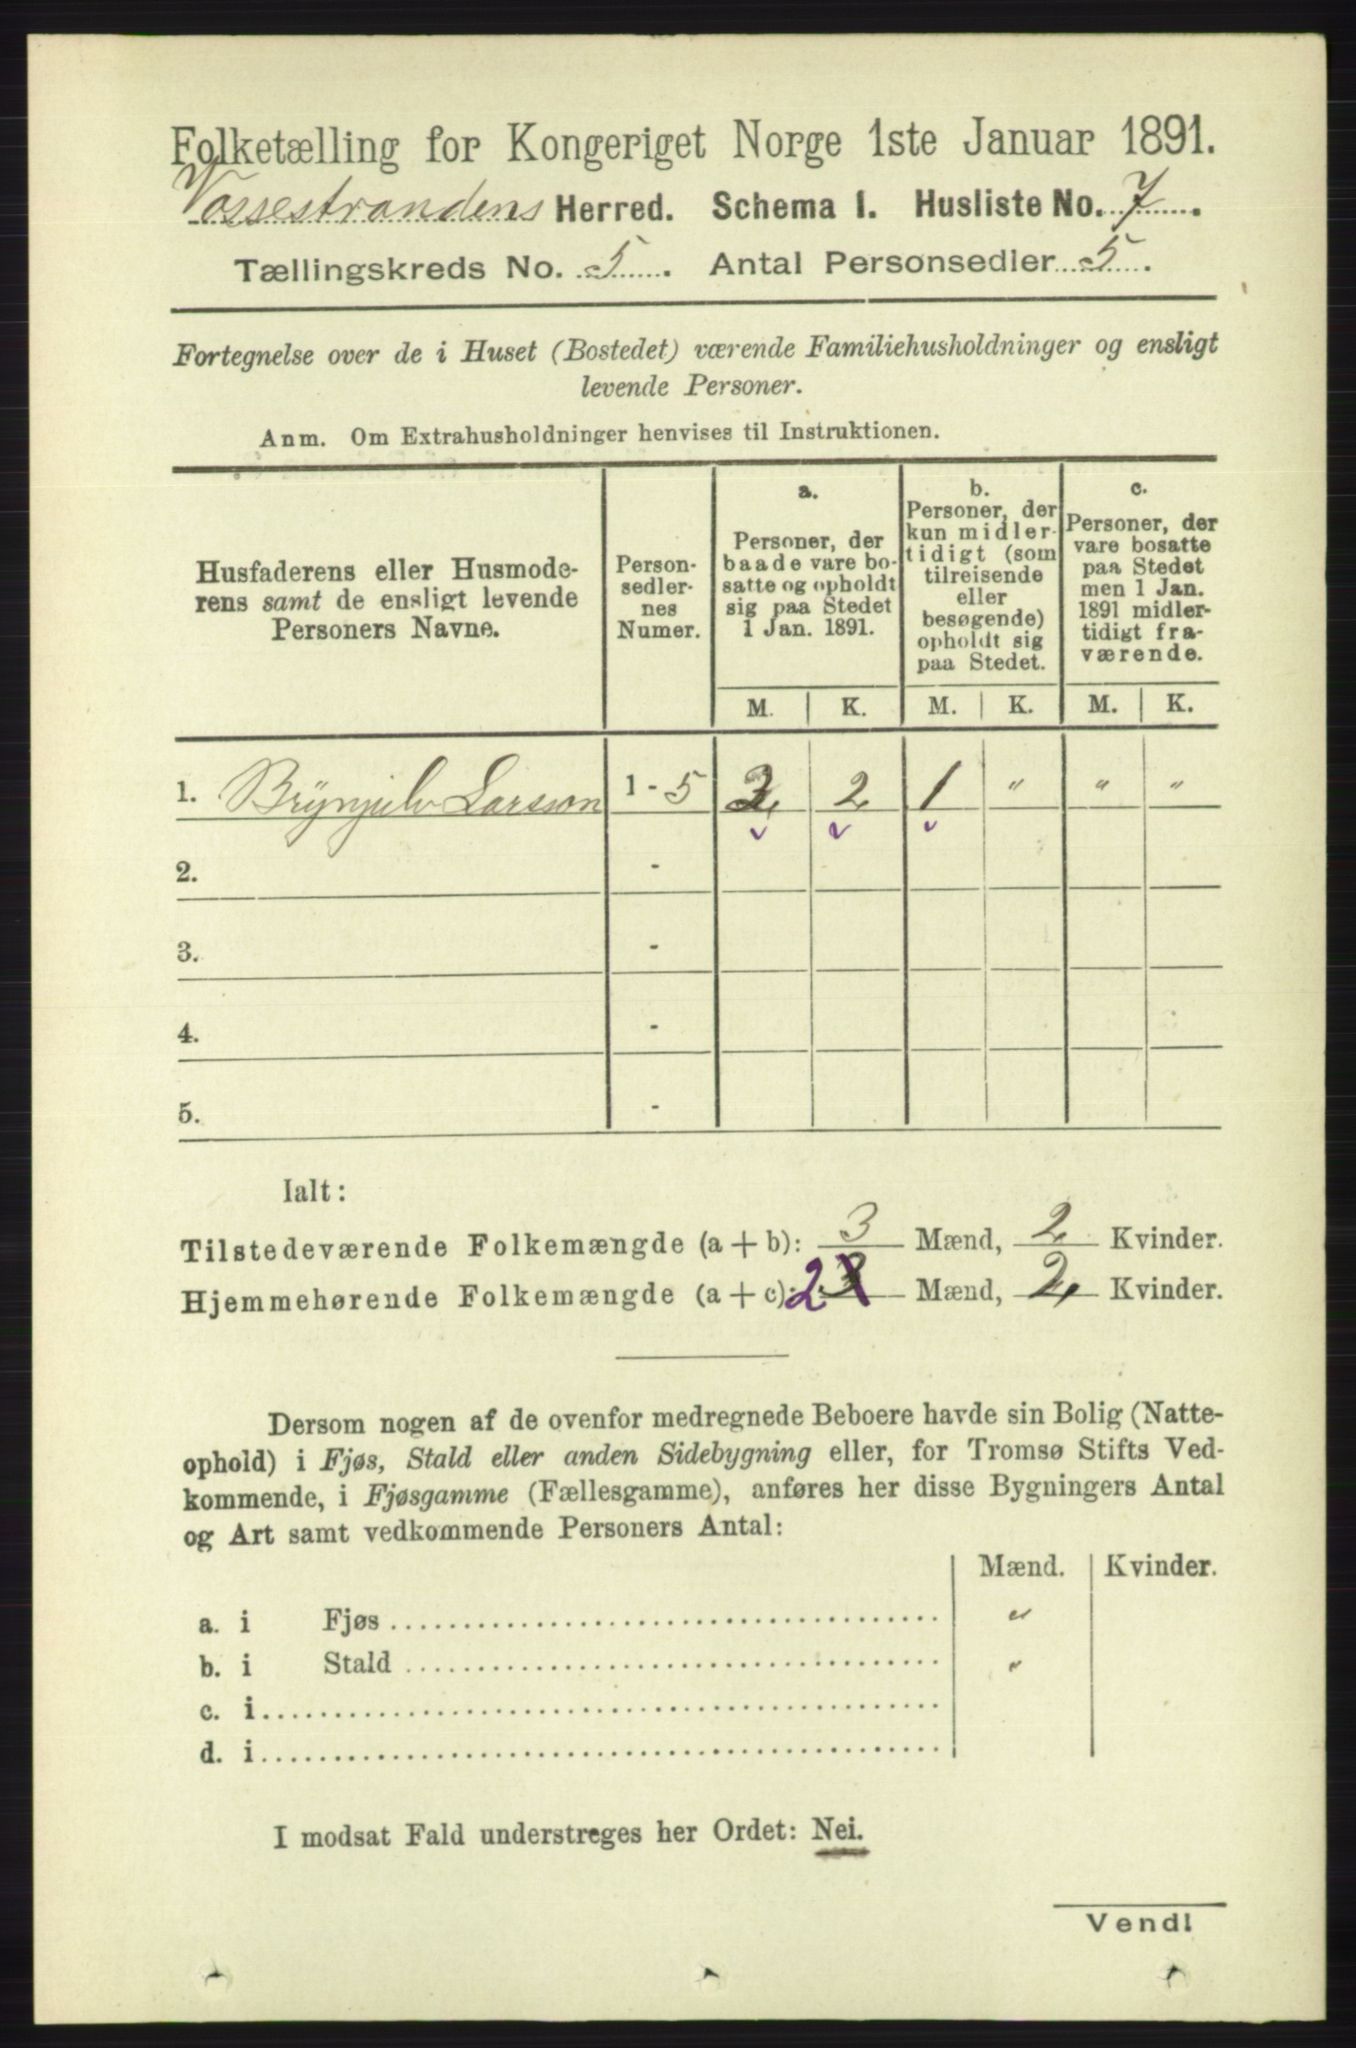 Folketælling for Kongeriget Norge 1ste Januar 1891.
Vossestrandens Herred. Schema I. Husliste No. 7.
Tællingskreds No. 5. Antal Personsedler 5.
Fortegnelse over de i Huset (Bostedet) værende Familiehusholdninger og ensligt
levende Personer.
Anm. Om Extrahusholdninger henvises til Instruktionen.
Husfaderens eller Husmode-
rens samt de ensligt levende
Personers Navne.
Person-
sedler-
nes
Numer.
a.
Personer, der
baade vare bo-
satte og opholdt
sig paa Stedet
1 Jan. 1891.
b.
Personer, der
kun midler-
tidigt (som
tilreisende
eller
besøgende)
opholdt sig
paa Stedet.
c.
Personer, der
vare bosatte
paa Stedet
men 1 Jan.
1891 midler-
tidigt fra-
værende.
M. K. M. K. M. K.
1. Brynjulv Larsson 1 - 5 2 2 1 " " "
2. -
3. -
4. -
5. -
Ialt:
Tilstedeværende Folkemængde (a + b): 3 Mænd, 2 Kvinder.
Hjemmehørende Folkemængde (a + c): 2 3 Mænd, 2 Kvinder.
Dersom nogen af de ovenfor medregnede Beboere havde sin Bolig (Natte-
ophold) i Fjøs, Stald eller anden Sidebygning eller, for Tromsø Stifts Ved-
kommende, i Fjøsgamme (Fællesgamme), anføres her disse Bygningers Antal
og Art samt vedkommende Personers Antal:
Mænd. Kvinder.
a. i Fjøs "
b. i Stald "
c. i
d. i
I modsat Fald understreges her Ordet: Nei.
Vend!